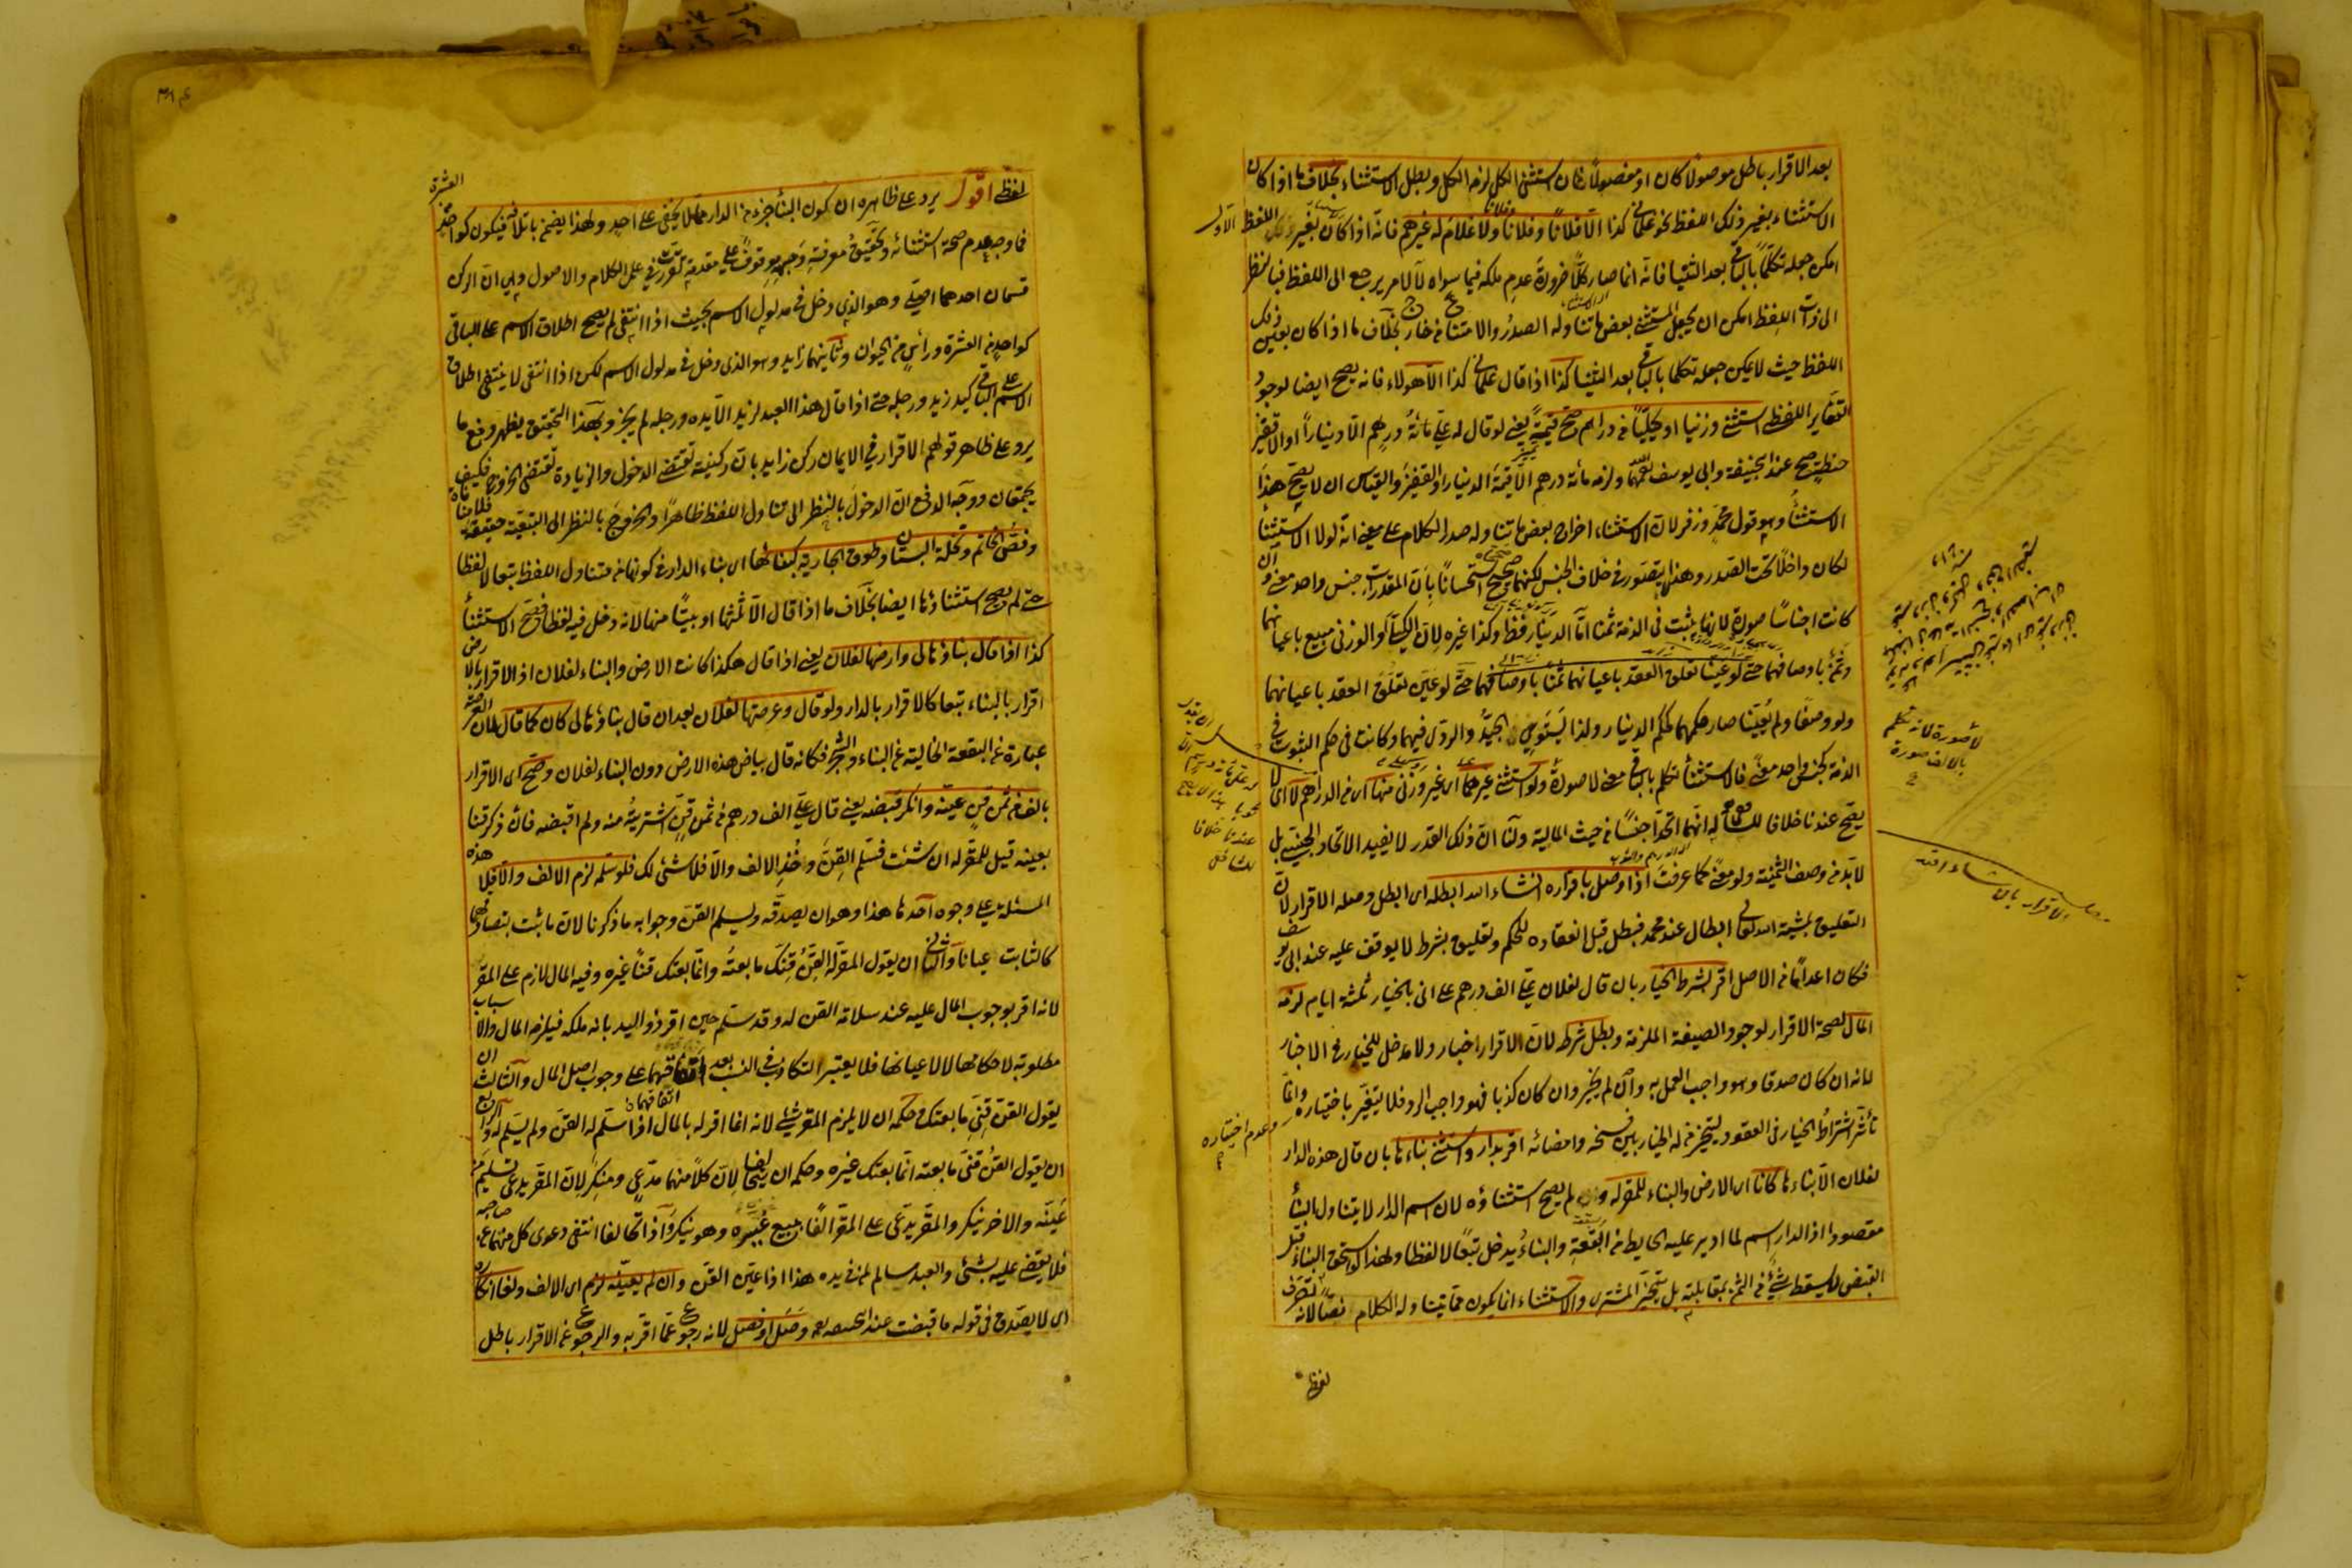 بعد الاقرار باطل موصولا كان او مفصولا فان استثنى الكل لزم الكل وبطل الاستثناء بخلاف ما اذا كان
الاستثناء بغير ذلك اللفظ نحو غلمانى كذا الا فلانا وفلانا وفلانا ولا غلام له غيرهم فانه اذا كان بغير اللفظ الاول
امكن جعله تكلما بالباقى بعد الثنيا فانه انما صار كلا ضرورة عدم ملكه فيما سواه لا لامر يرجع الى اللفظ فبالنظر
الى ذات اللفظ امكن ان يجعل المستثنى بعض ما تناوله الصدر والامتناع من خارج بخلاف ما اذا كان بعين ذلك
اللفظ حيث لا يمكن جعله تكلما بالباقى بعد الثنيا كذا اذا قال غلمانى كذا الا هولاء فانه يصح ايضا لوجود
التغاير اللفظى استثنى وزنيا او كيليا من دراهم صح قيمة يعنى لو قال له على مائة درهم الا دينارا او الا قفيز
حنطة صح عند ابيحنيفة وابى يوسف رحمهما الله ولزمه مائة درهم الا قيمة الدينار او القفيز والقياس ان لا يصح هذا
الاستثناء وهو قول محمد وزفر لان الاستثناء اخراج بعض ما يتناوله صدر الكلام على معنى انه لولا الاستثناء
لكان داخلا تحت الصدر وهذا لا يتصور فى خلاف الجنس لكنهما صححاه استحسانا بان المقدرات جنس واحد معنى وان
كانت اجناسا صورة لانها يثبت فى الذمة ثمنا اما الدينار فظ وكذا غيره لان الكيلى والوزنى مبيع باعيانهما
وثمن باوصافهما حتى لو عينا تعلق العقد باعيانهما
ولو وصفا ولم يعينا صار حكمهما كحكم الدينار ولذا يستوى الجيد والردى فيهما وكانت فى حكم الثبوت فى
الذمة كجنس واحد معنى فالاستثناء تكلم بالباقى معنى لا صورة ولو استثنى غيرهما اى غير وزنى منها اى من الدراهم لا اى لا
يصح عندنا خلافا للشافعى له انهما اتحدا جنسا من حيث المالية ولنا ان ذلك القدر لا يفيد الاتحاد الجنسية بل
لا بد من وصف الثمنية ولو معنى كما عرفت اذا وصل باقراره انشاء الله ابطله اى ابطل وصله الاقرار لان
التعليق بمشية الله تعالى ابطال عند محمد فبطل قبل انعقاده للحكم وتعليق بشرط لا يوقف عليه عند ابى يوسف
فكان اعداما من الاصل اقر بشرط الخيار بان قال لفلان على الف درهم على انى بالخيار ثلثة ايام لزمه
المال لصحة الاقرار لوجود الصيغة الملزمة وبطل شرطه لان الاقرار اخبار ولا مدخل للخيار فى الاخبار
لانه ان كان صدقا وهو واجب العمل به وان لم يخير وان كان كذبا فهو واجب الرد فلا يتغير باختياره وعدم اختياره وانما
تأثير اشتراط الخيار فى العقود ليتخير من له الخيار بين فسخه وامضائه اقر بدار واستثنى بناءها بان قال هذه الدار
لفلان الا بناءها كانا اى الارض والبناء للمقر له ولم يصح استثناؤه لان اسم الدار لا يتناول البناء
مقصودا اذ الدار اسم لما ادير عليه الحايط من البقعة والبناء يدخل تبعا لا لفظا ولهذا لو استحق البناء قبل
القبض لا يسقط شئ من الثمن بمقابلته بل يتخير المشترى والاستثناء انما يكون مما يتناوله الكلام نصا لانه تصرف
لفظى
لا صورة لانه تكلم
بالالف صورة
الاقرار بان شاء الله
عندنا خلافا
للشافعى
لفظى اقول يرد على ظاهره ان كون البناء جزء من الدار مما لا يخفى على احد ولهذا يضمن باتلافه فيكون كواحد من العشرة
فما وجه عدم صحة استثنائه وتحقيق معرفة وجهه موقوف على مقدمة تقررت فى علم الكلام والاصول وهى ان الركن
قسمان احدهما اصلى وهو الذى دخل فى مدلول الاسم بحيث اذا انتفى لم يصح اطلاق الاسم على الباقى
كواحد من العشرة ورأس من الحيوان وثانيهما زايد وهو الذى دخل فى مدلول الاسم لكن اذا انتفى لا ينتفى اطلاق
الاسم على الباقى كيد زيد ورجله حتى اذا قال هذا العبد لزيد الا يده ورجله لم يجز وبهذا التحقيق يظهر دفع ما
يرد على ظاهر قولهم الاقرار فى الايمان ركن زايد بان ركنيته تقتضى الدخول والزيادة تقتضى الخروج فكيف
يجتمعان ووجه الدفع ان الدخول بالنظر الى تناول اللفظ ظاهرا والخروج بالنظر الى التبعية حقيقة فلا منافاة
وفص الخاتم ونخلة البستان وطوق الجارية كبنائها اى بناء الدار فى كونها من متناول اللفظ تبعا لا لفظا
حتى لم يصح استثناؤها ايضا بخلاف ما اذا قال الا ثلثها او بيتا منها لانه دخل فيه لفظا فصح الاستثناء
كذا اذا قال بناؤها لى وارضها لفلان يعنى اذا قال هكذا كانت الارض والبناء لفلان اذ الاقرار بالارض
اقرار بالبناء تبعا كالاقرار بالدار ولو قال وعرصتها لفلان بعد ان قال بناؤها لى كان كما قال لان العرصة
عبارة عن البقعة الخالية عن البناء والشجر فكانه قال بياض هذه الارض دون البناء لفلان وصح اى الاقرار
بالف من ثمن قن عينه وانكر قبضه يعنى قال على الف درهم من ثمن قن اشتريته منه ولم اقبضه فان ذكر قنا
بعينه قيل للمقر له ان شئت فسلم القن وخذ الالف والا فلا شئ لك فلو سلمه لزم الالف والا فلا هذه
المسئلة على وجوه احدها هذا وهو ان يصدقه ويسلم القن وجوابه ما ذكرنا لان ما ثبت بتصادقهما
كالثابت عيانا والثانى ان يقول المقر له القن قنك ما بعته وانما بعتك قنا غيره وفيه المال لازم على المقر
لانه اقر بوجوب المال عليه عند سلامة القن له وقد سلم حين اقر ذو اليد بانه ملكه فيلزمه المال والاسباب
مطلوبة لاحكامها لا لاعيانها فلا يعتبر التكاذب فى السبب بعد اتفاقهما على وجوب اصل المال والثالث ان
يقول القن قنى ما بعتك وحكمه ان لا يلزم المقر شئ لانه انما اقر له بالمال اذا سلم له القن ولم يسلم له والرابع
ان يقول القن قنى ما بعته انما بعتك غيره وحكمه ان يتحالفا لان كلا منهما مدعى ومنكر لان المقر يدعى تسليم من
عينه والاخر ينكر والمقر له يدعى على المقر الفا ببيع غيره وهو ينكر واذا تحالفا انتفى دعوى كل منهما عن صاحبه
فلا يقضى عليه بشئ والعبد سالم لمن فى يده هذا اذا عين القن وان لم يعينه لزم اى الالف ولغا انكاره
اى لا يصدق فى قوله ما قبضت عند ابيحنيفه وصل او فصل لانه رجوع عما اقر به والرجوع عن الاقرار باطل